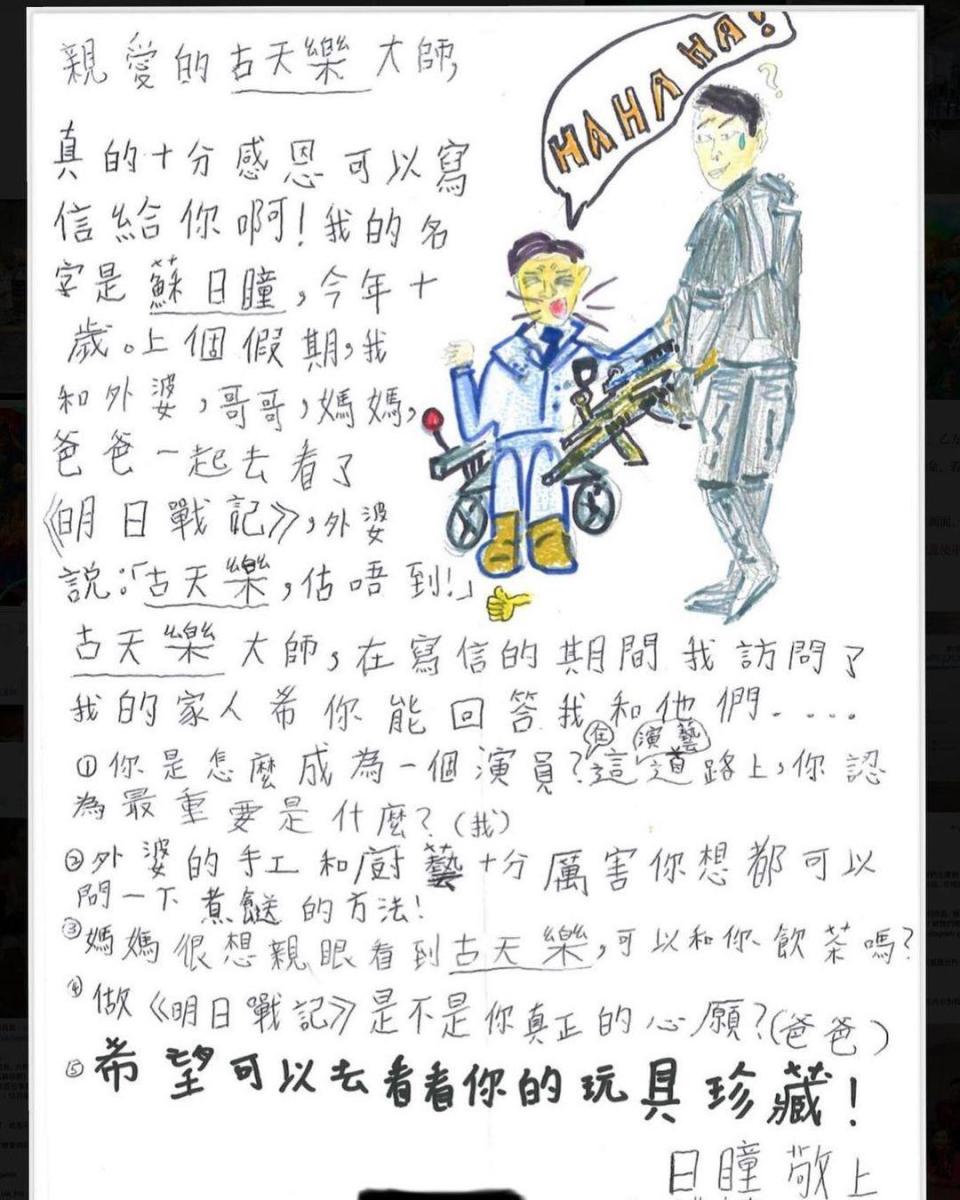 親愛的古天樂大師,
HAHA HA!
?
真的十分感恩可以寫
信給你啊!我的名
字是蘇日瞳,今年十
歲。上個假期,我
和外婆,哥哥,媽媽,
爸爸一起去看了
《明日戰記》,外婆
說:「古天樂,估唔到!」
古天樂大師,在寫信的期間我訪問了
我的家人希你能回答我和他們....
①你是怎麼成為一個演員?在這演藝道路上,你認
為最重要是什麼?(我)
②外婆的手工和廚藝十分厲害你想都可以
問一下煮餸的方法!
③媽媽很想親眼看到古天樂,可以和你飲茶嗎?
④做《明日戰記》是不是你真正的心願?(爸爸)
⑤希望可以去看看你的玩具珍藏!
日瞳敬上